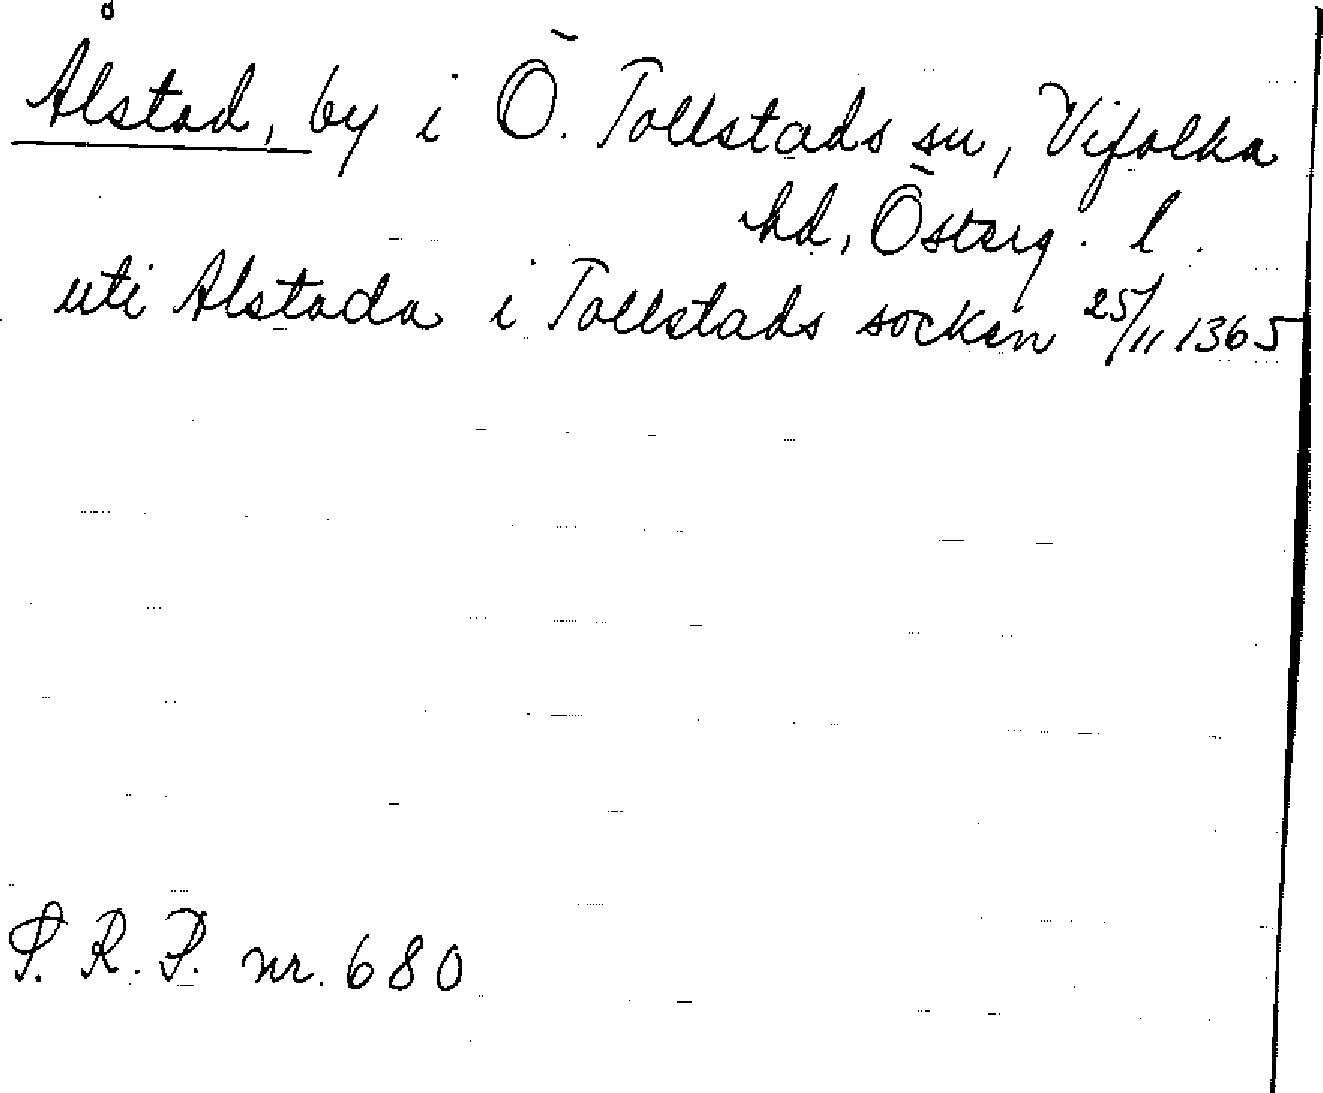 Ålstad, by i Ö. Tollstads sn, Vifolka
hd, Österg. l.
uti Alstada i Tollstads socken 25/11 1365
P. R. P. nr. 680